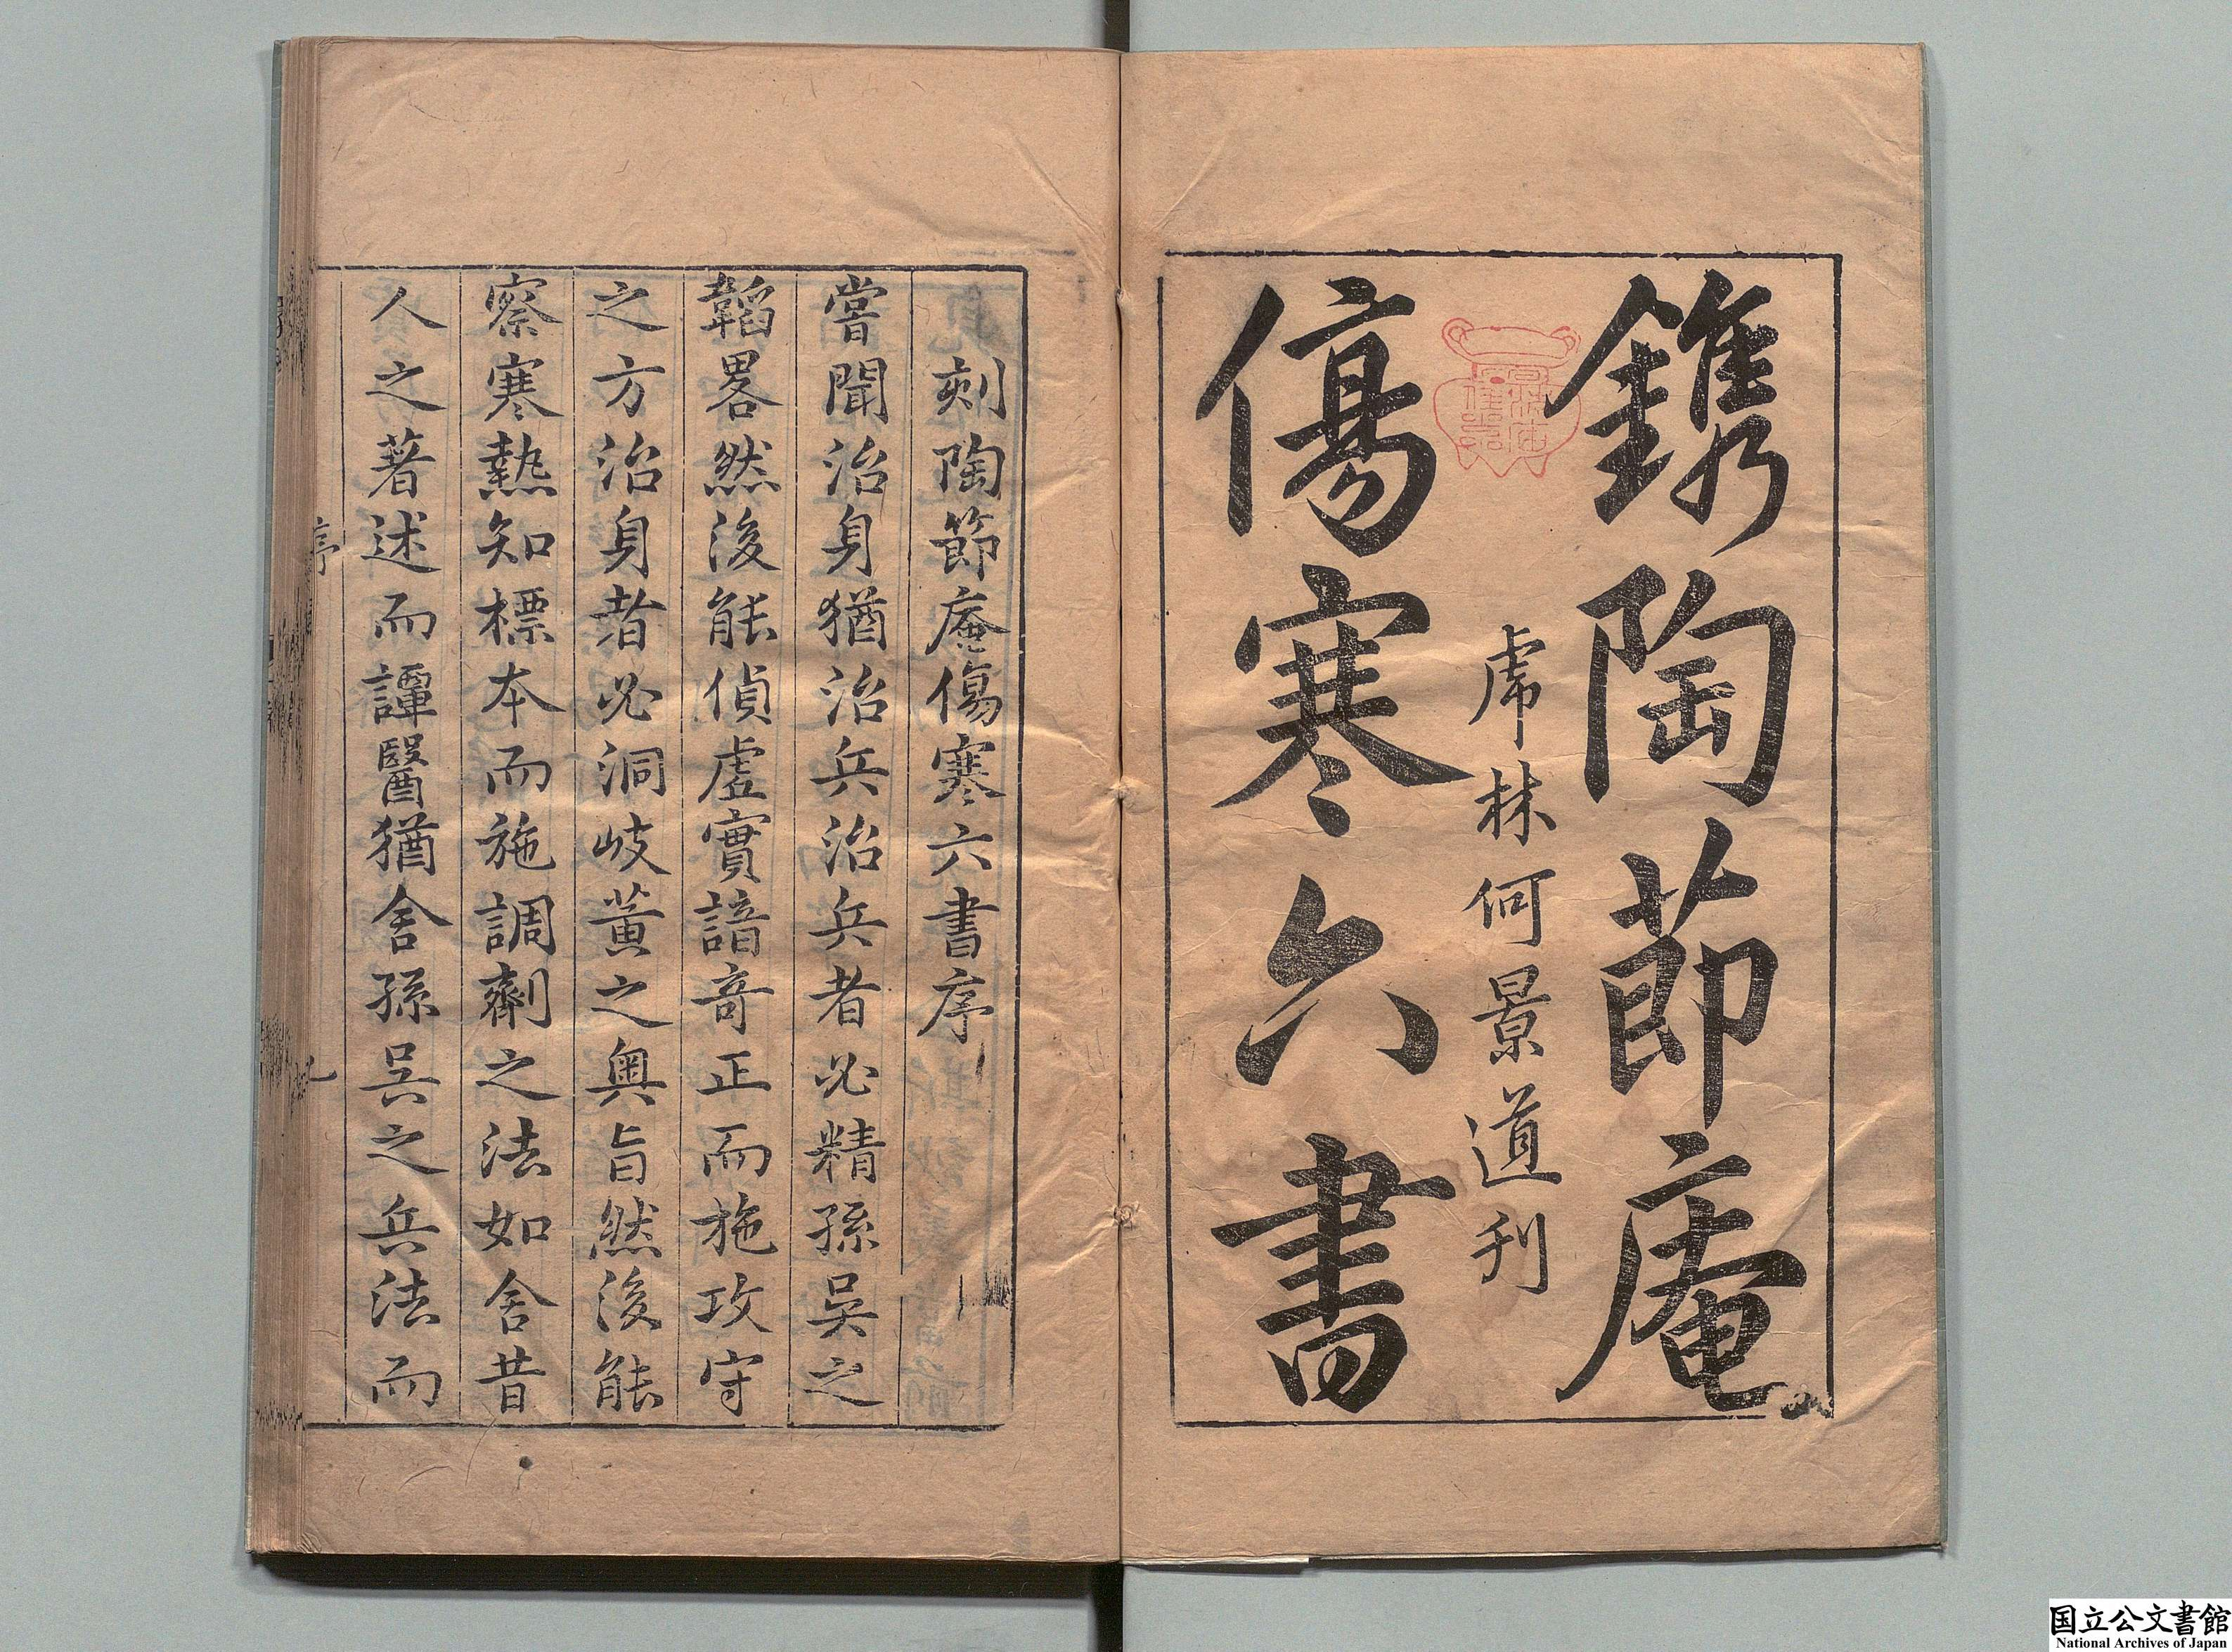 鐫陶節庵
虎林何景道刋
傷寒六書
刻陶節庵傷寒六書序
嘗聞治身猶治兵治兵者必精孫吳之
韜畧然後能偵虛實諳竒正而施攻守
之方治身者必洞岐黃之奧旨然後能
察寒熱知標本而施調劑之法如舍昔
人之著述而譚醫猶舍孫吳之兵法而
序
國立公文書館
National Archives of Japan